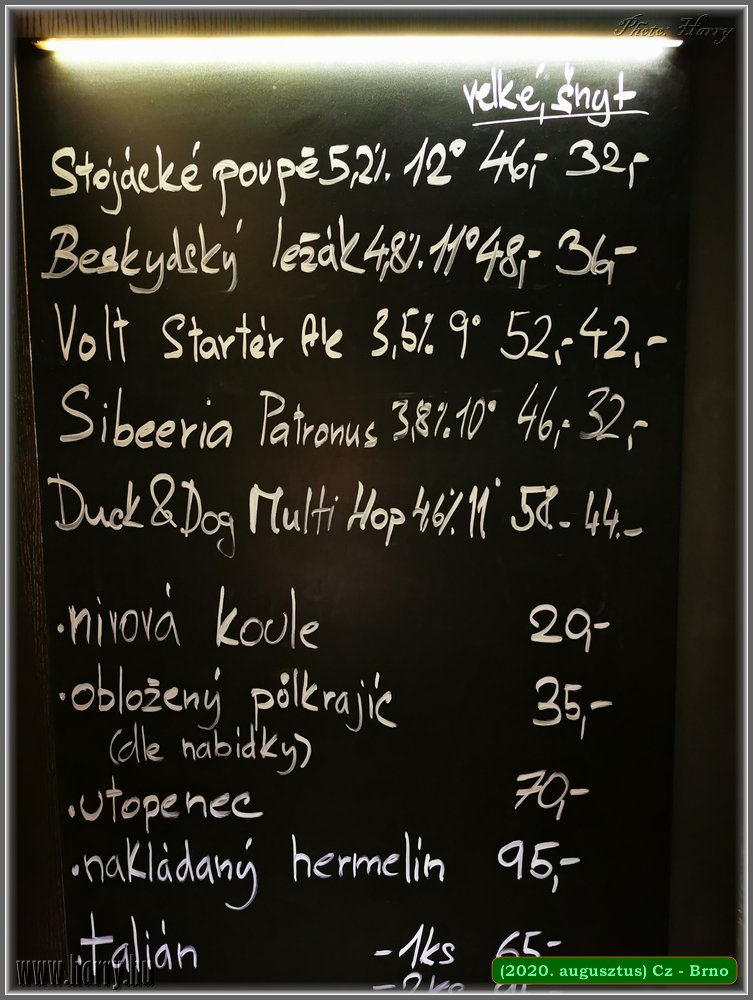 Photo: Horry
velké, šnyt
Stojácké poupě 5,2% 12° 46,- 32,-
Beskydský ležák 4,8% 11° 48,- 36,-
Volt Startér Ale 3,5% 9° 52,- 42,-
Sibeeria Patronus 3,8% 10° 46,- 32,-
Duck&Dog Multi Hop 4,6% 11° 58,- 44,-
•nivová koule 29,-
•obložený půlkrajíc 35,-
(dle nabídky)
•utopenec 70,-
•nakládaný hermelín 95,-
•talián -1ks 65,-
www.horry.hu
(2020. augusztus) Cz - Brno